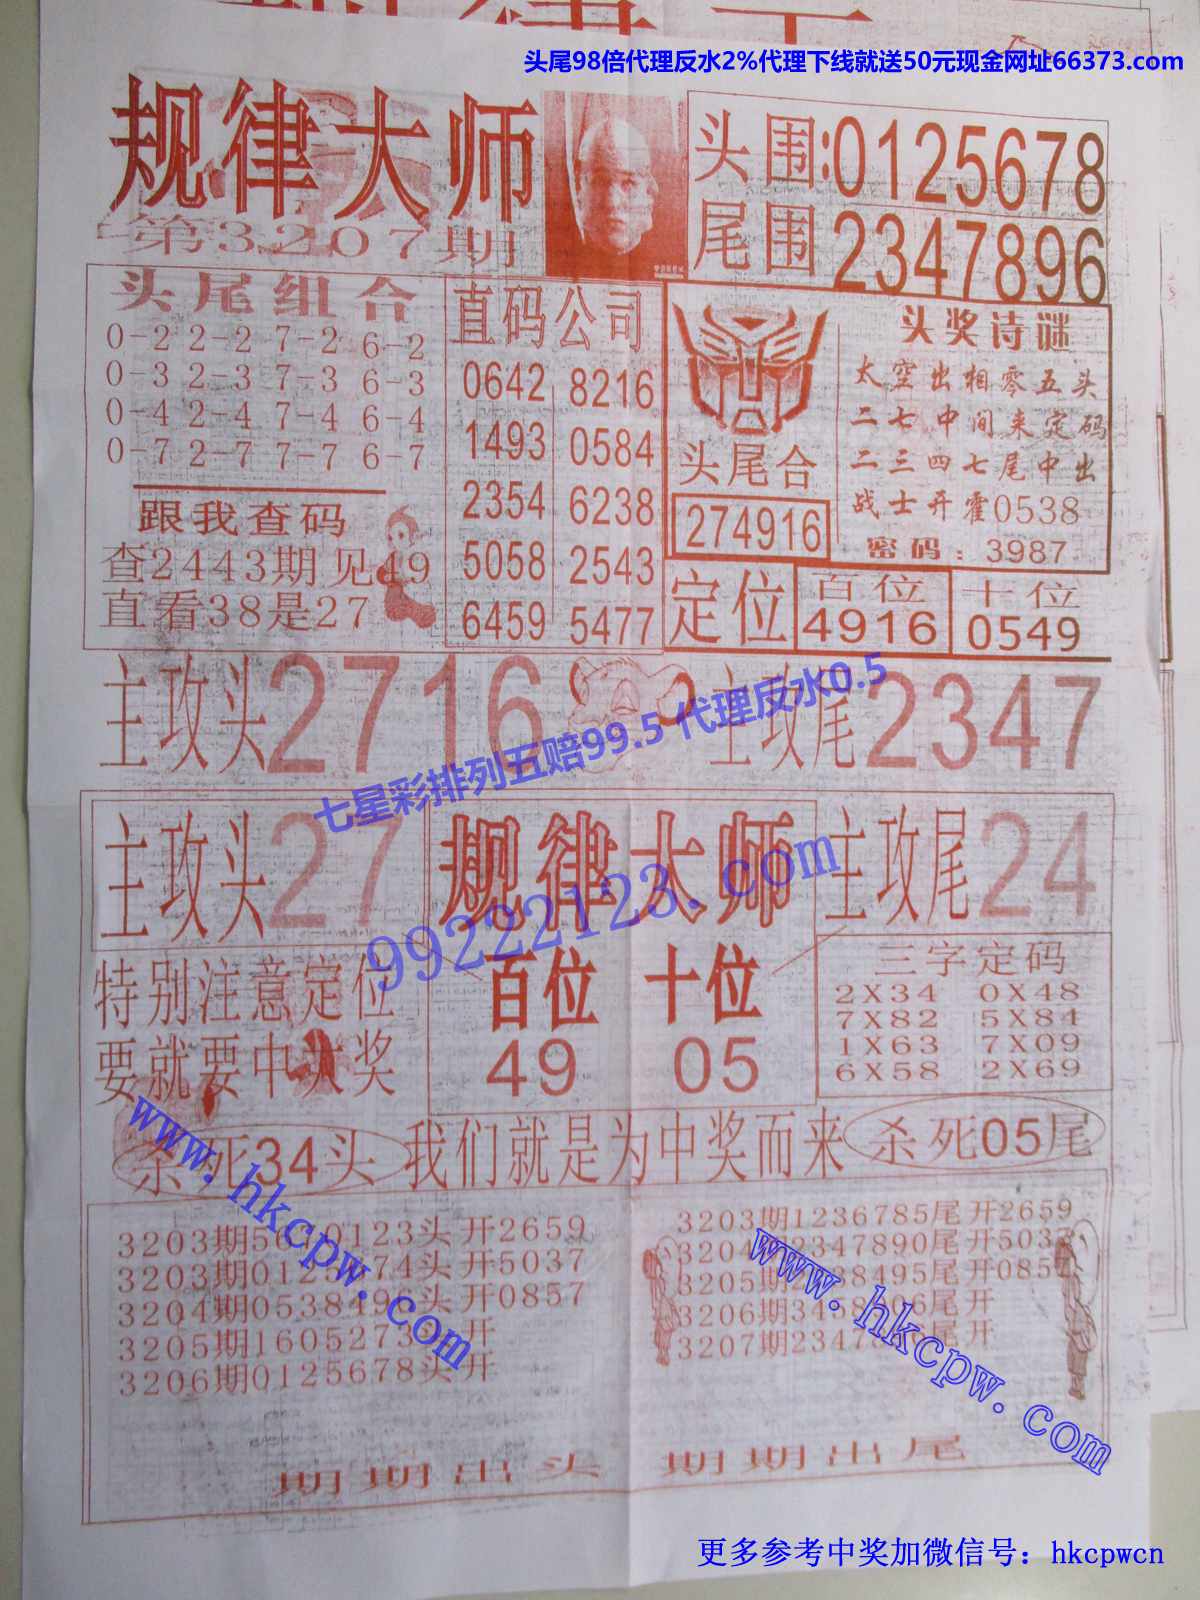 头尾98倍代理反水2%代理下线就送50元现金网址66373.com
规律大师
第3207期
头围:0125678
尾围2347896
头尾组合
0-2 2-2 7-2 6-2
0-3 2-3 7-3 6-3
0-4 2-4 7-4 6-4
0-7 2-7 7-7 6-7
跟我查码
查2443期见49
直看38是27
直码公司
0642 8216
1493 0584
2354 6238
5058 2543
6459 5477
头尾合
274916
头奖诗谜
太空出相零五头
二七中间来定码
二三四七尾中出
战士开霍0538
密码：3987
定位
百位
4916
十位
0549
主攻头2716
主攻尾2347
七星彩排列五赔99.5 代理反水0.5
主攻头27
规律大师
主攻尾24
99222123.com
特别注意定位
要就要中大奖
百位 十位
49 05
三字定码
2X34 0X48
7X82 5X84
1X63 7X09
6X58 2X69
杀死34头
我们就是为中奖而来
杀死05尾
www.hkcpw.com
3203期 0123头开2659
3203期 74头开5037
3204期 头开0857
3205期 开
3206期0125678头开
期期出头
3203期1236785尾开2659
3204期2347890尾开
3205期 38495尾开
3206期 尾开
3207期 尾开
期期出尾
www.hkcpw.com
更多参考中奖加微信号：hkcpwcn